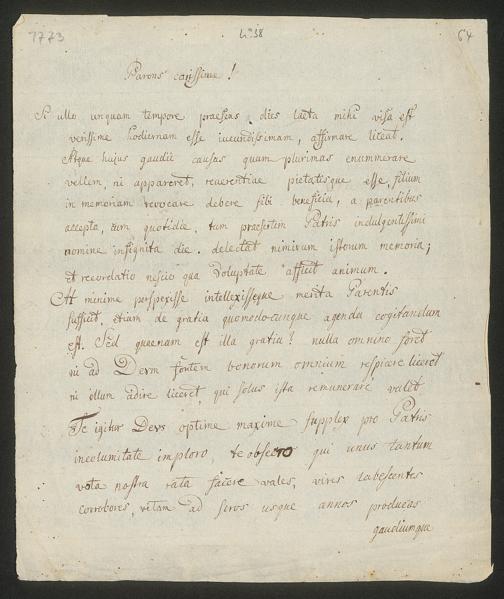 1773
No 38
64
Parens carissime!
Si ullo unquam tempore praesens dies laeta mihi visa est
verissime hodiernam esse iucundissimam, affirmare liceat.
Atque huius gaudii causas quam plurimas enummerare
vellem, ni appareret, reverentiae pietatisque esse, filium
in memoriam revocare debere sibi beneficia, a parentibus
accepta, cum quotidie, tum praesertim Patris indulgentissimi
nomine insignita die. delectat nimirum istorum memoria;
et recordatio nescio qua voluptate afficit animum.
At minime perspexisse intellexisseque merita Parentis
sufficit, etiam de gratia quomodocunque agenda cogitandum
est. Sed quaenam est illa gratia? nulla omnino foret
ni ad Deum fontem bonorum omnium respicere liceret
ni illum adire liceret, qui solus ista remunerare valet
Te igitur Deus optime maxime supplex pro Patris
incolumitate imploro, te obsecro qui unus tantum
vota nostra rata facere vales, vires labescentes
corrobores, vitam ad seros usque annos producas
gaudiumque